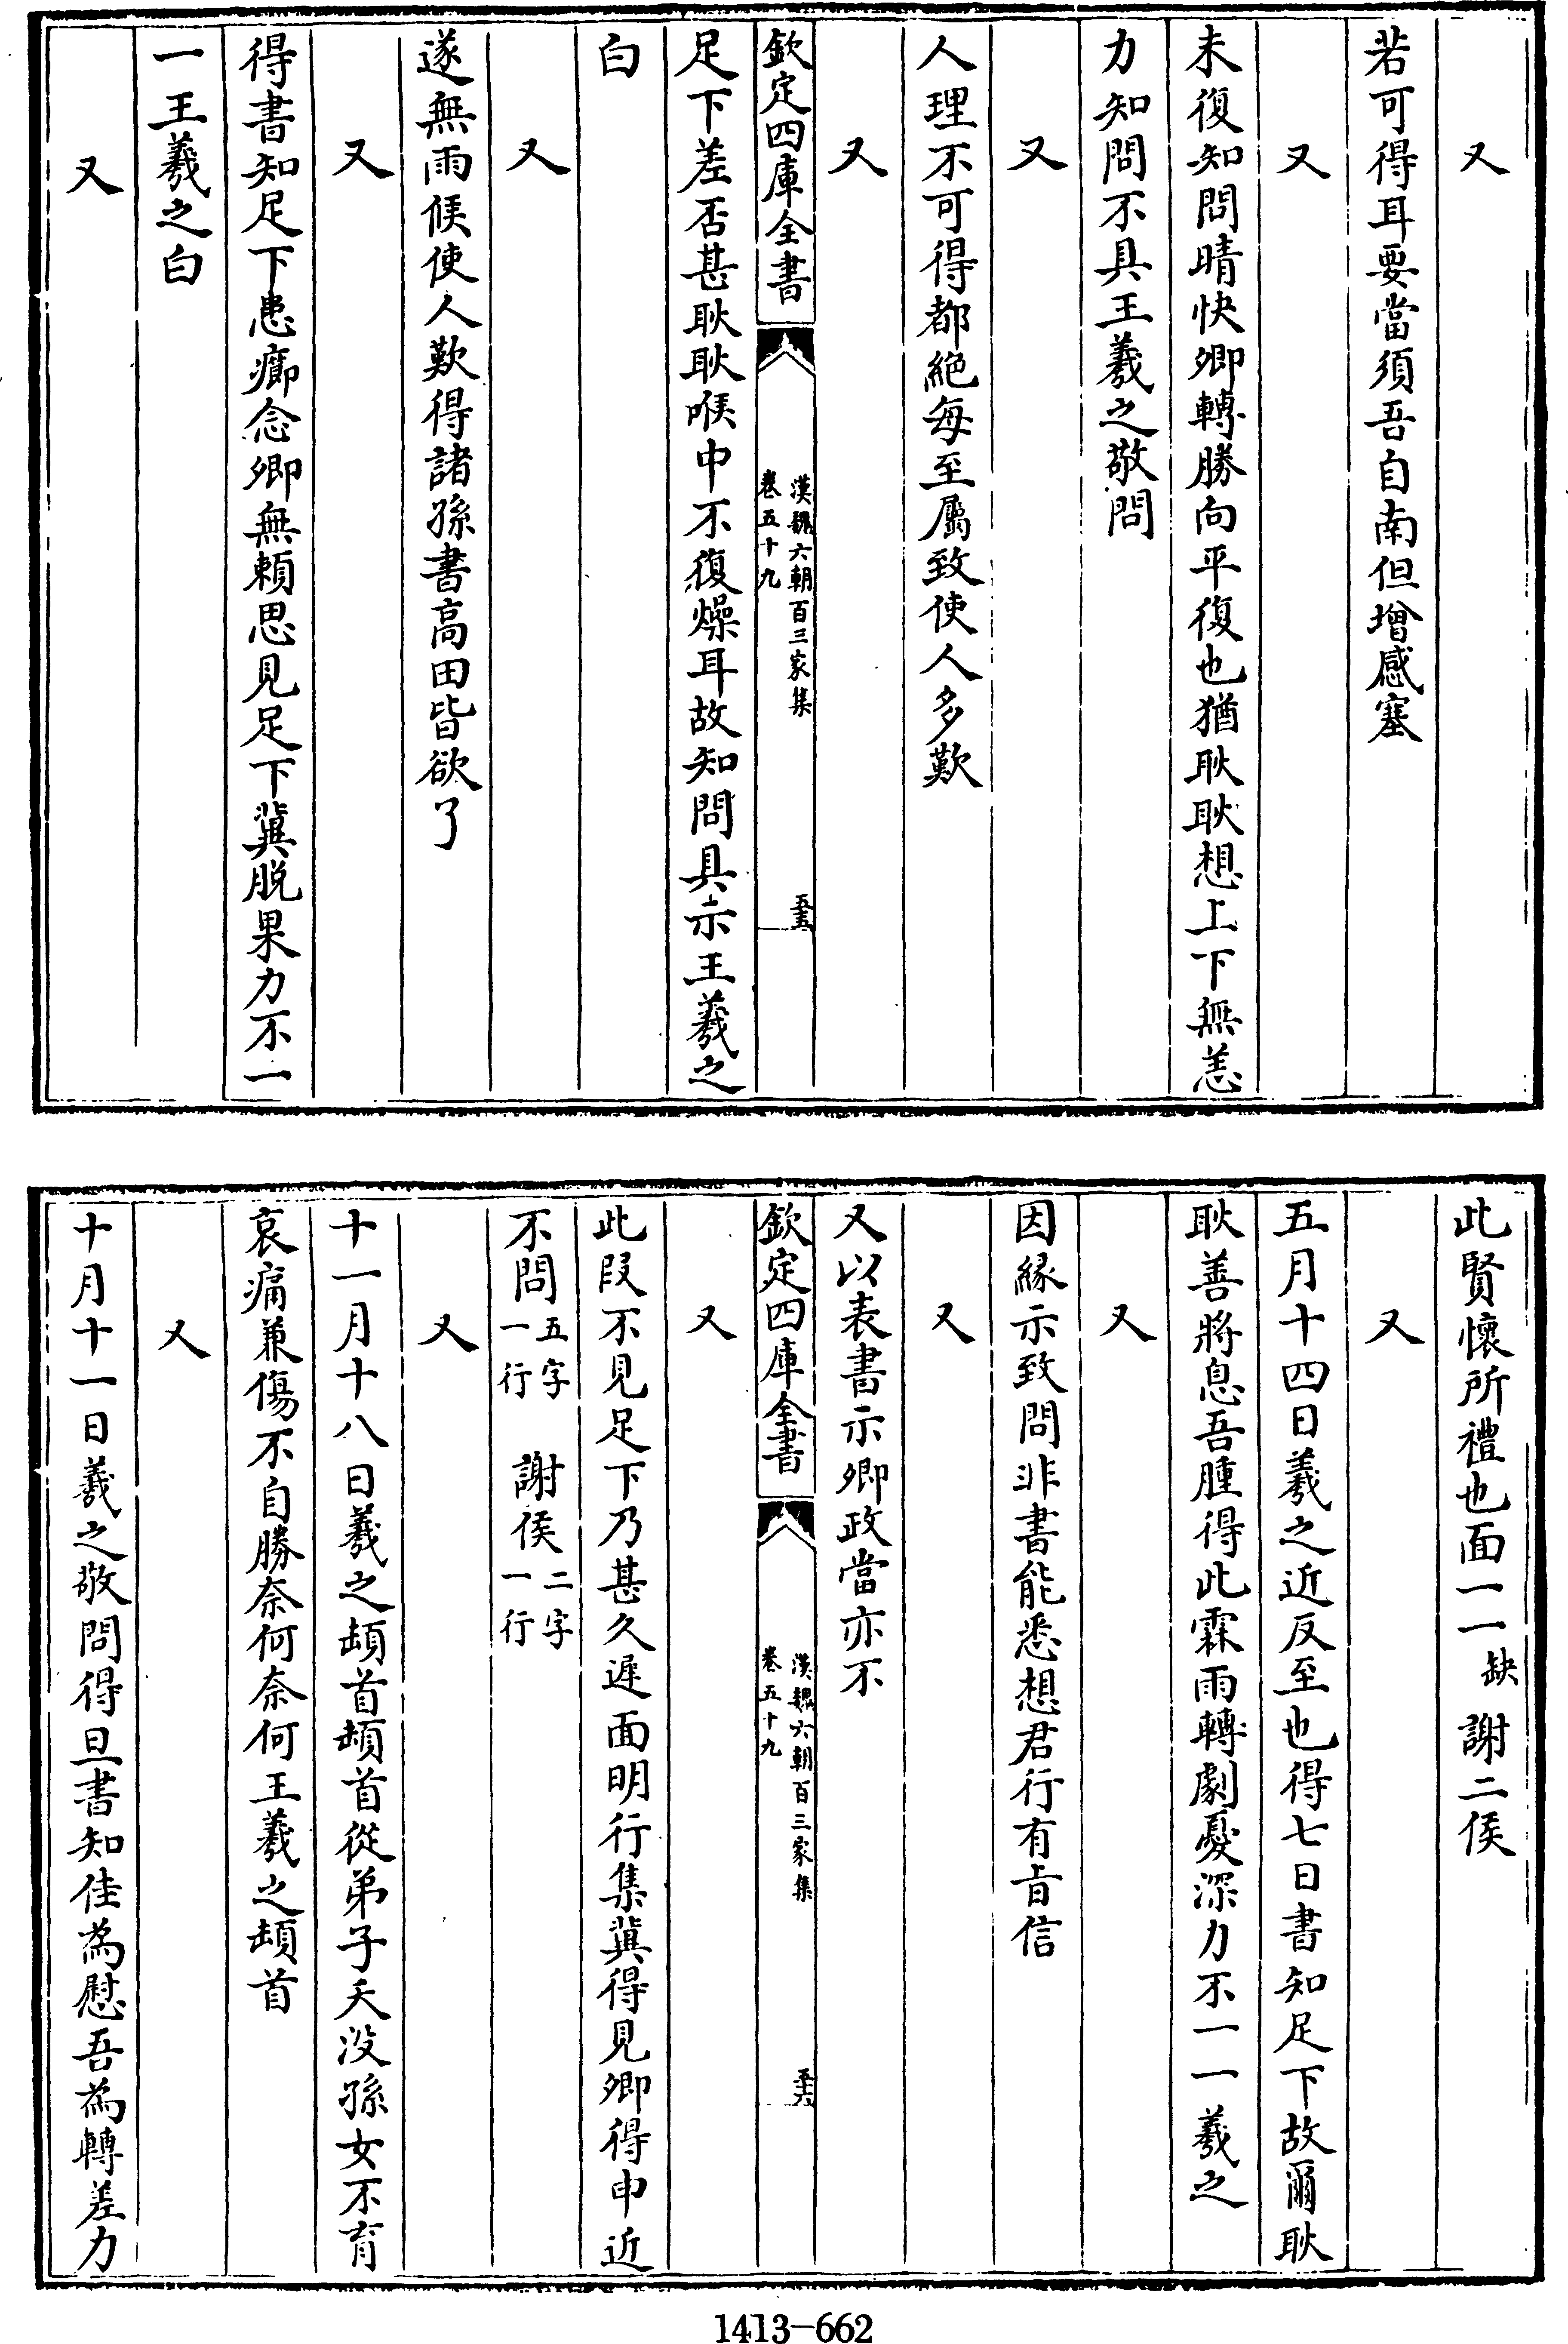 又
若可得耳要當須吾自南但增感塞
又
未復知問晴快卿轉勝向平復也猶耿耿想上下無恙
力知問不具王羲之敬問
又
人理不可得都絕每至屬致使人多歎
又
欽定四庫全書
漢魏六朝百三家集
卷五十九
五十五
足下差否甚耿耿喉中不復燥耳故知問具示王羲之
白
又
遂無雨候使人歎得諸孫書高田皆欲了
又
得書知足下患癤念卿無賴思見足下冀脫果力不一
一王羲之白
又
此賢懷所禮也面一一缺 謝二侯
又
五月十四日羲之近反至也得七日書知足下故爾耿
耿善將息吾腫得此霖雨轉劇憂深力不一一羲之
又
因緣示致問非書能悉想君行有旨信
又
又以表書示卿政當亦不
欽定四庫全書
漢魏六朝百三家集
卷五十九
五十六
又
此段不見足下乃甚久遲面明行集冀得見卿得申近
不問五字一行 謝侯二字一行
又
十一月十八日羲之頓首頓首從弟子夭沒孫女不育
哀痛兼傷不自勝奈何奈何王羲之頓首
又
十月十一日羲之敬問得旦書知佳為慰吾為轉差力
1413-662